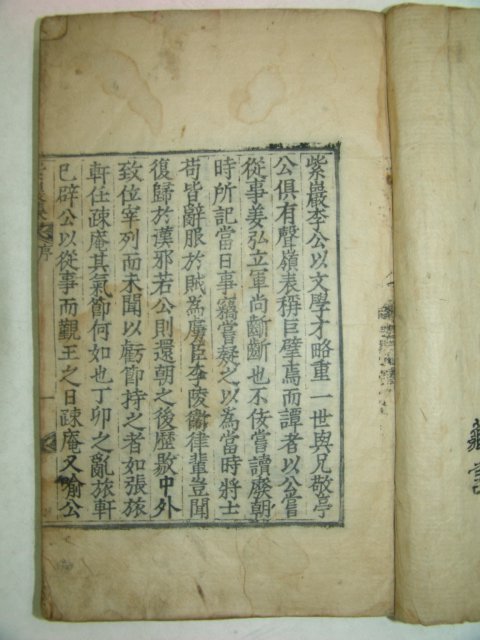 紫巖李公以文學才略重一世與兄敬亭
公俱有聲嶺表稱巨擘焉而譚者以公嘗
從事姜弘立軍尚齗齗也不佞嘗讀廢朝
時所記當日事竊嘗疑之以為當時將士
苟皆辭服於賊為虜臣李陵衛律輩豈聞
復歸於漢邪若公則還朝之後歷敭中外
致位宰列而未聞以虧節持之者如張旅
軒任疎庵其氣節何如也丁卯之亂旅軒
已辟公以從事而覲王之日疎庵又喻公
序